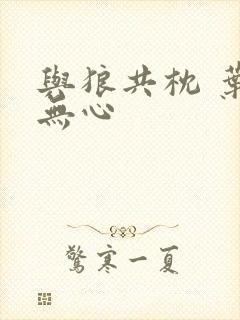 與狼共枕 葉
無心
驚寒一夏